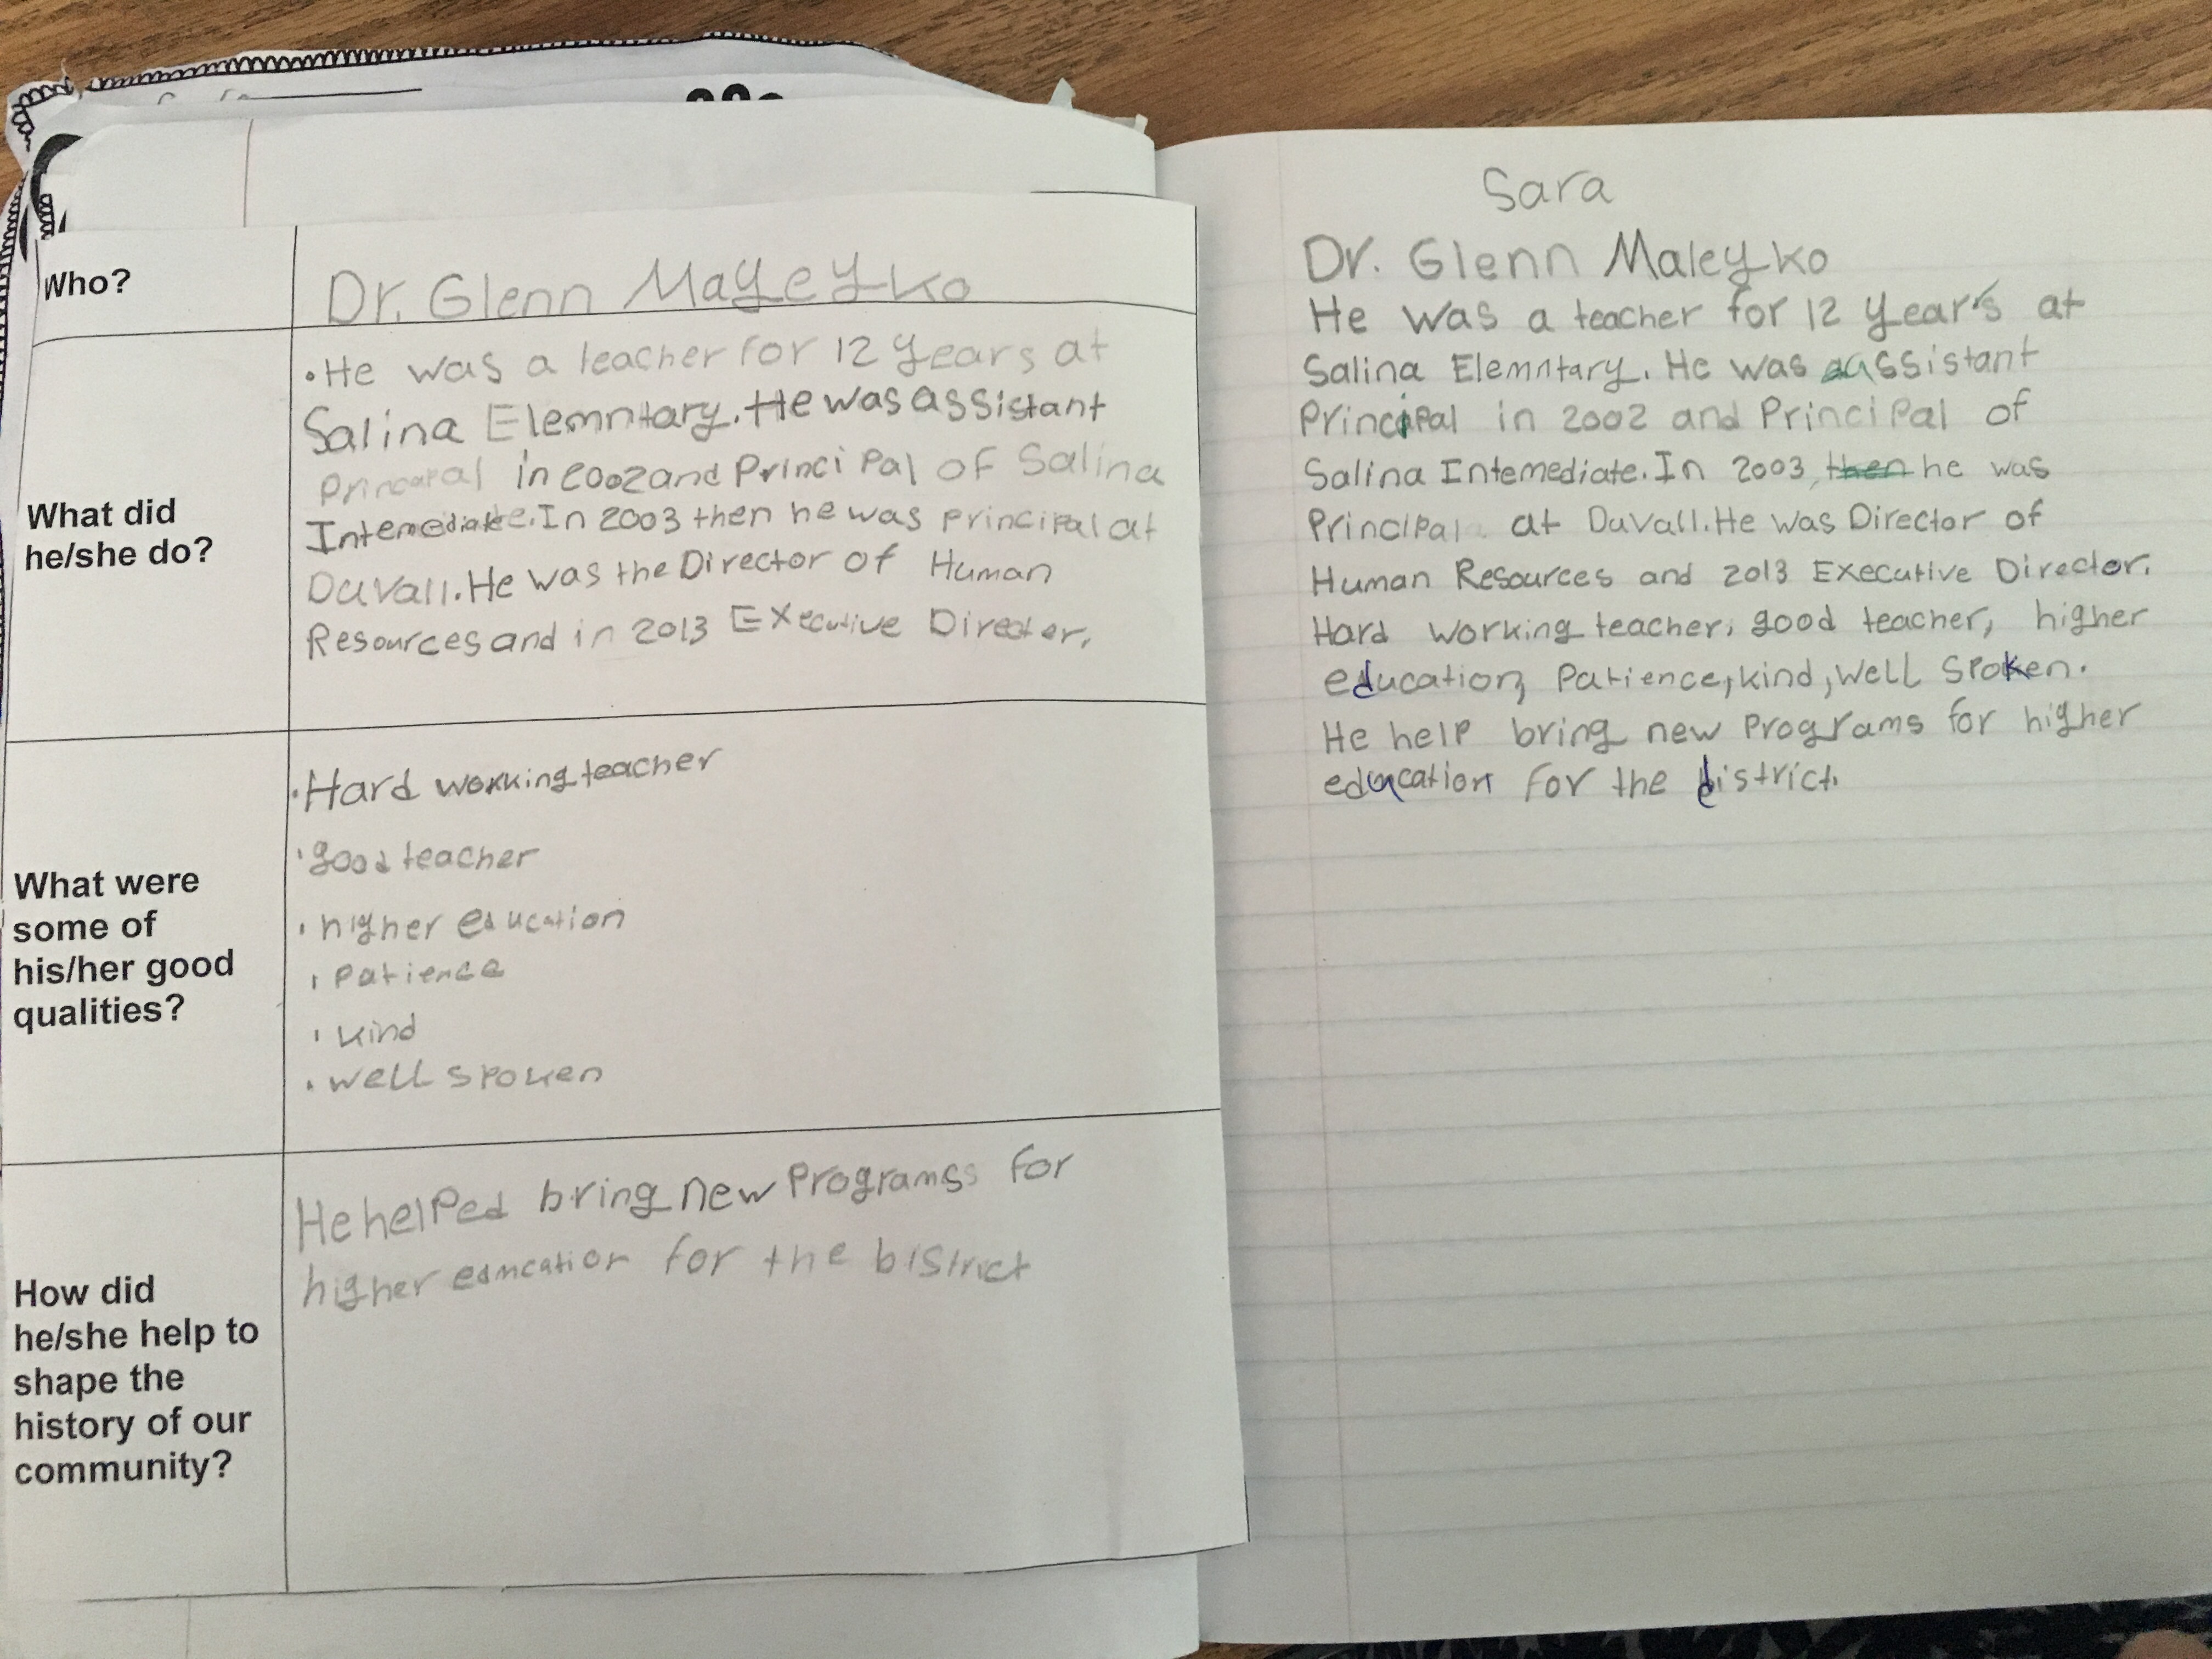 Who?
Dr. Glenn Mayeyko
What did
he/she do?
•He was a teacher for 12 years at
Salina Elemntary. He was assistant
Princapal in 2002 and Principal of Salina
Intemediate. In 2003 then he was principal at
DuVall. He was the Director of Human
Resources and in 2013 Executive Director.
What were
some of
his/her good
qualities?
•Hard working teacher
•good teacher
•higher education
•Patience
•kind
•well spoken
How did
he/she help to
shape the
history of our
community?
He helped bring new Programss for
higher eduncation for the bistrict
Sara
Dr. Glenn Maleyko
He was a teacher for 12 years at
Salina Elemntary. He was assistant
Principal in 2002 and Principal of
Salina Intemediate. In 2003, then he was
Principal at DuVall. He was Director of
Human Resources and 2013 Executive Director.
Hard working teacher, good teacher, higher
education, Patience, kind, well spoken.
He help bring new Programs for higher
education for the district.